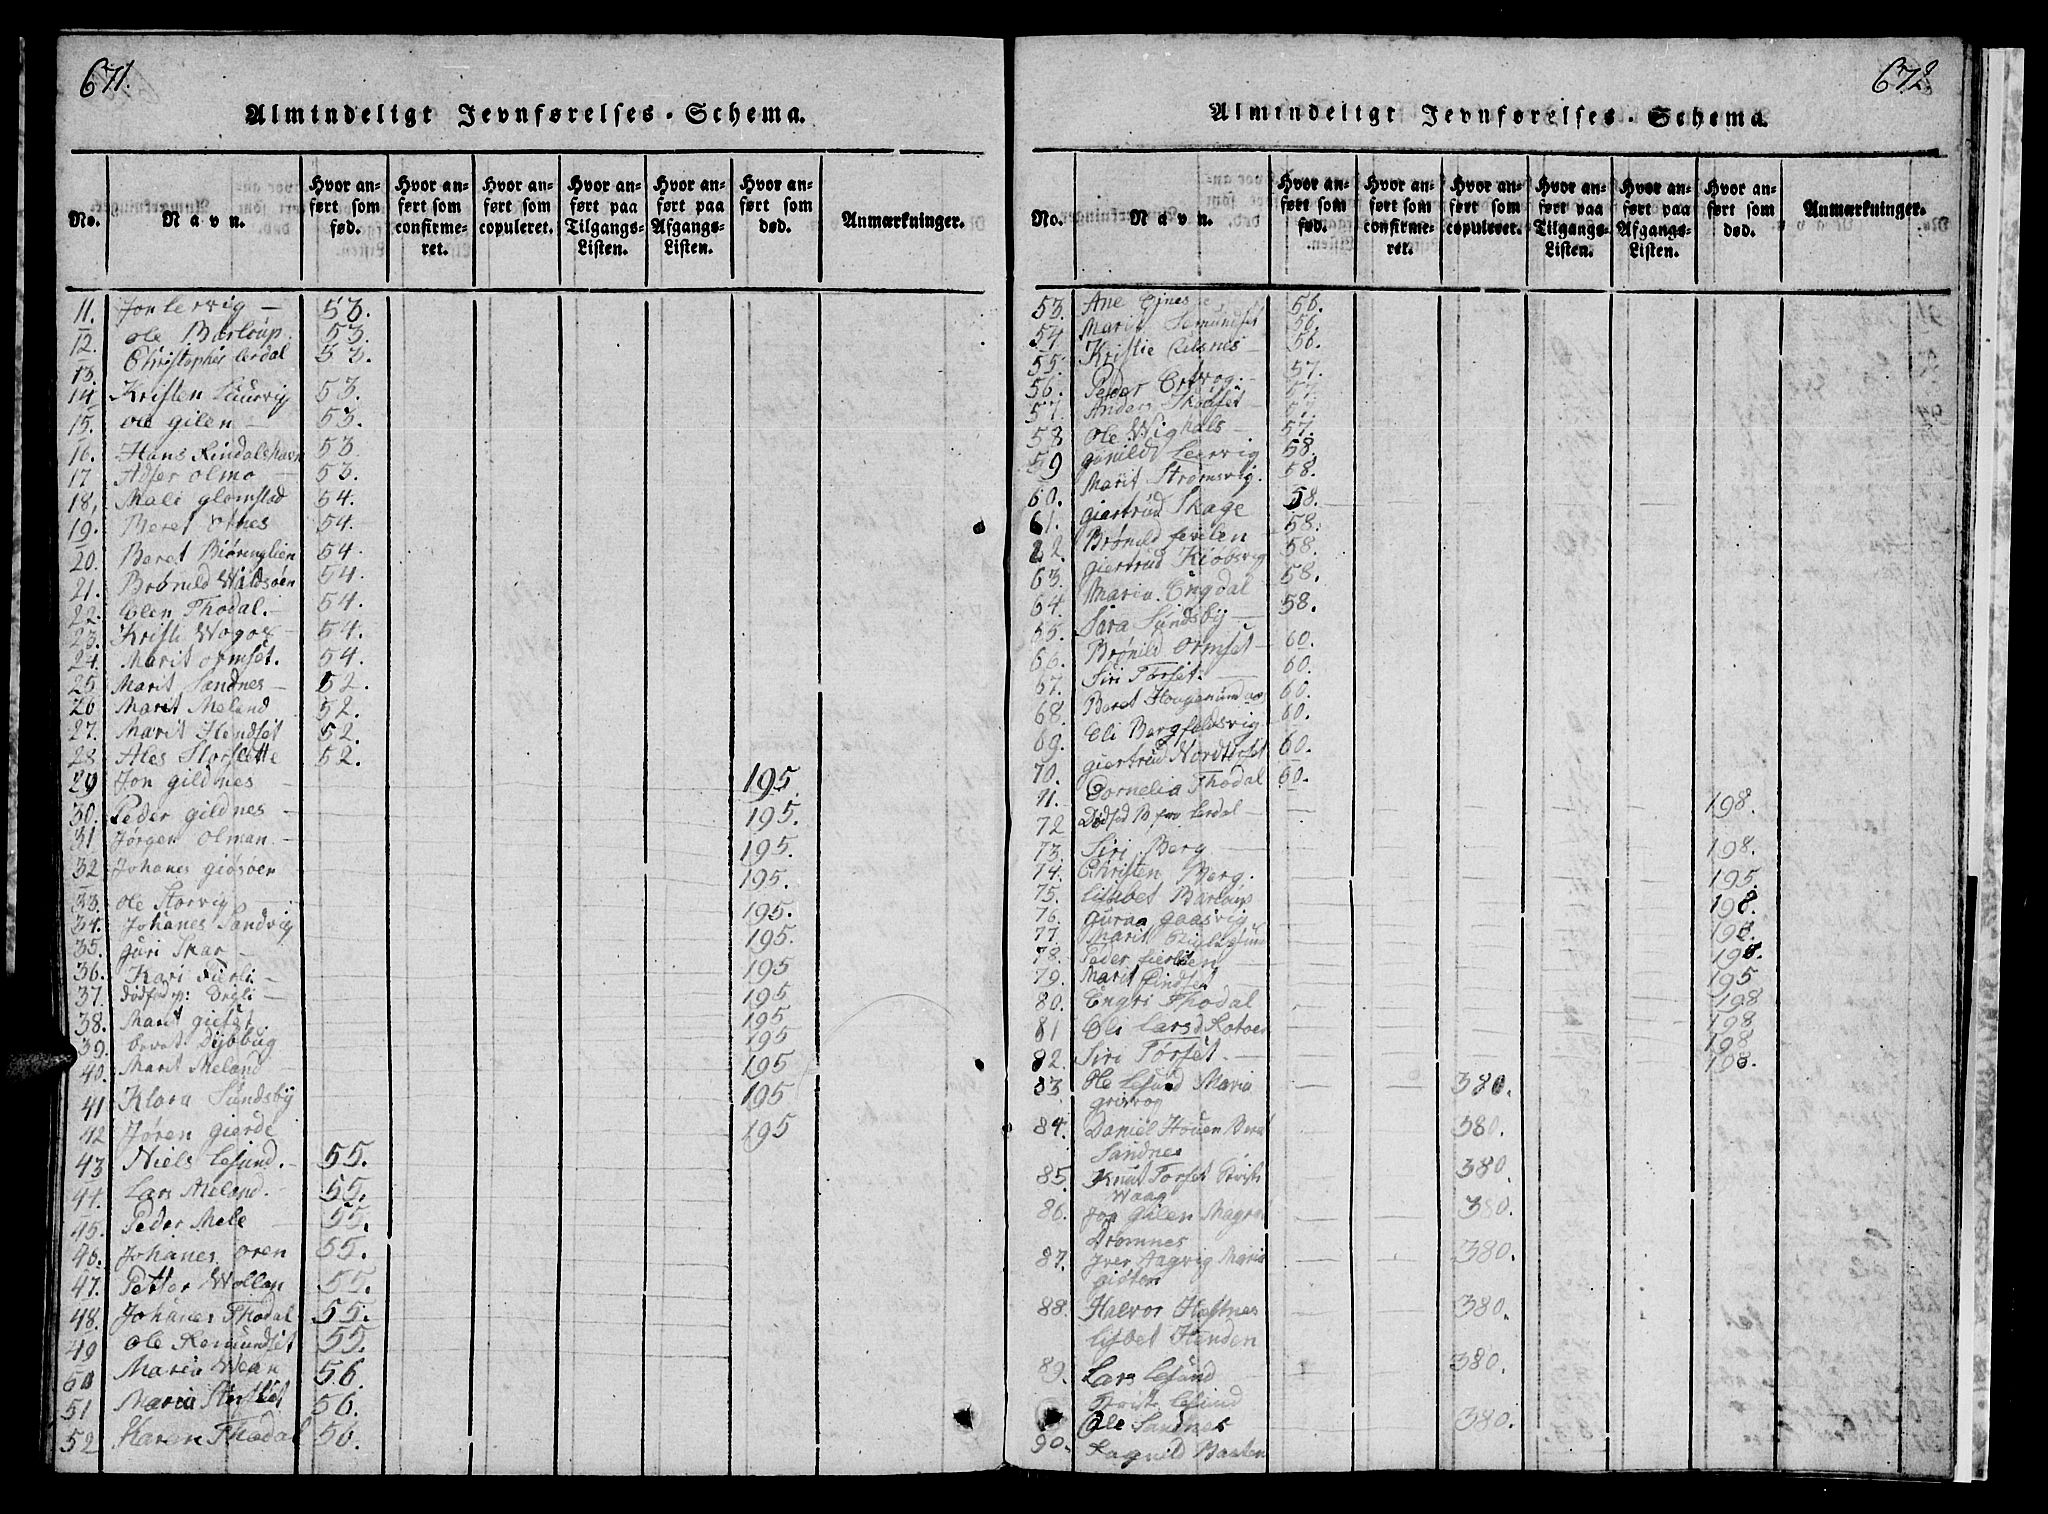 671.
Almindeligt Jevnførelses-Schema.
No.
Navn.
Hvor anført som fød.
Hvor anført som confirmeret.
Hvor anført som copuleret.
Hvor anført paa Tilgangs-Listen.
Hvor anført paa Afgangs-Listen.
Hvor anført som død.
Anmærkninger.
11. Jon Lervig — 53.
12. Ole Bartoup. 53.
13. Christopher Lerdal 53.
14. Kristen 53.
15. Ole Gilen — 53.
16. Hans Rindalshavn 53
17. Adser Olmo — 53.
18. Mali Glomstad 54.
19. Beret Ornes 54.
20. Beret Biøringlien 54.
21. Brønild Wiidsøen 54.
22. Elen Thodal. — 54.
23. Kristi 54.
24. Marit Ormset. 54.
25. Marit Sandnes — 52.
26 Marit Meland 52.
27. Marit Hendset 52.
28 Ales Storslette 52.
29 Jon Gildnes — 195.
30. Peder Gildnes — 195.
31 Jørgen Olman — 195.
32 Johanes Giøsøen 195.
33. Ole Storvig — 195.
34. Johanes Sandvig 195.
35. Guri Skar — 195
36. Kari — 195
37. Dødfød — 195
38. Marit 195
39. Beret Dybbug 195
40. Marit Meland — 195
41 Klara Sundsby 195
42 Jøren Gierde 195
43 Niels Lesund. — 55.
44. Lars Meland. — 55.
45. Peder Mele — 55.
46. Johanes Oren 55.
47. Petter Wollan 55.
48. Johanes Thodal 55.
49 Ole Remundset 55.
50 Maria Wean 56.
51 Maria 56.
52 Karen Thodal 56.
672.
Almindeligt Jevnførelses-Schema.
No.
Navn.
Hvor anført som fød.
Hvor anført som confirmeret.
Hvor anført som copuleret.
Hvor anført paa Tilgangs-Listen.
Hvor anført paa Afgangs-Listen.
Hvor anført som død.
Anmærkninger.
53. Ane 56.
54 Marit Remundset 56.
55. Kristie — 56.
56. Peder 57.
57. Anders Skodset 57.
58 Ole Wighals — 57.
59 Gunild Leervig 58.
60. Marit Strømsvig. 58.
61. Giertrud Skage 58.
62. Brønild 58.
63. Giertrud Kiøbsvig 58.
64. Maria Engdal 58.
65. Sara Sundsby — 58.
66. Brønild Ormset — 60.
67. Siri Torset. — 60.
68. Beret 60.
69. Eli Bergfeldsvig 60.
70. Giertrud 60.
71. Cornelia Thodal 60.
72 Dødfød Lerdal — 198.
73. Siri Berg — 198.
74. Christen Berg. 195.
75. Lisbet Bartoup 198.
76. Guraa Gaasvig 198.
77. Marit 198.
78. Peder 195
79. Marit 198
80. Engri Thodal 198
81 Eli Larsd 198
82. Siri Torset. — 198.
83 Ole Lesund Maria 380.
84. Daniel Houen Beret 380.
Sandnes
85. Knut Torset 380.
Waag
86. Jon Gilen Magra 380.
Drømnes
87. Iver Aagvig Maria 380.
88. Halvor Hestnes 380.
Lisbet Henden
89. Lars Lesund 380.
Lesund
90. Ole Sandnes 380.
Ragnild